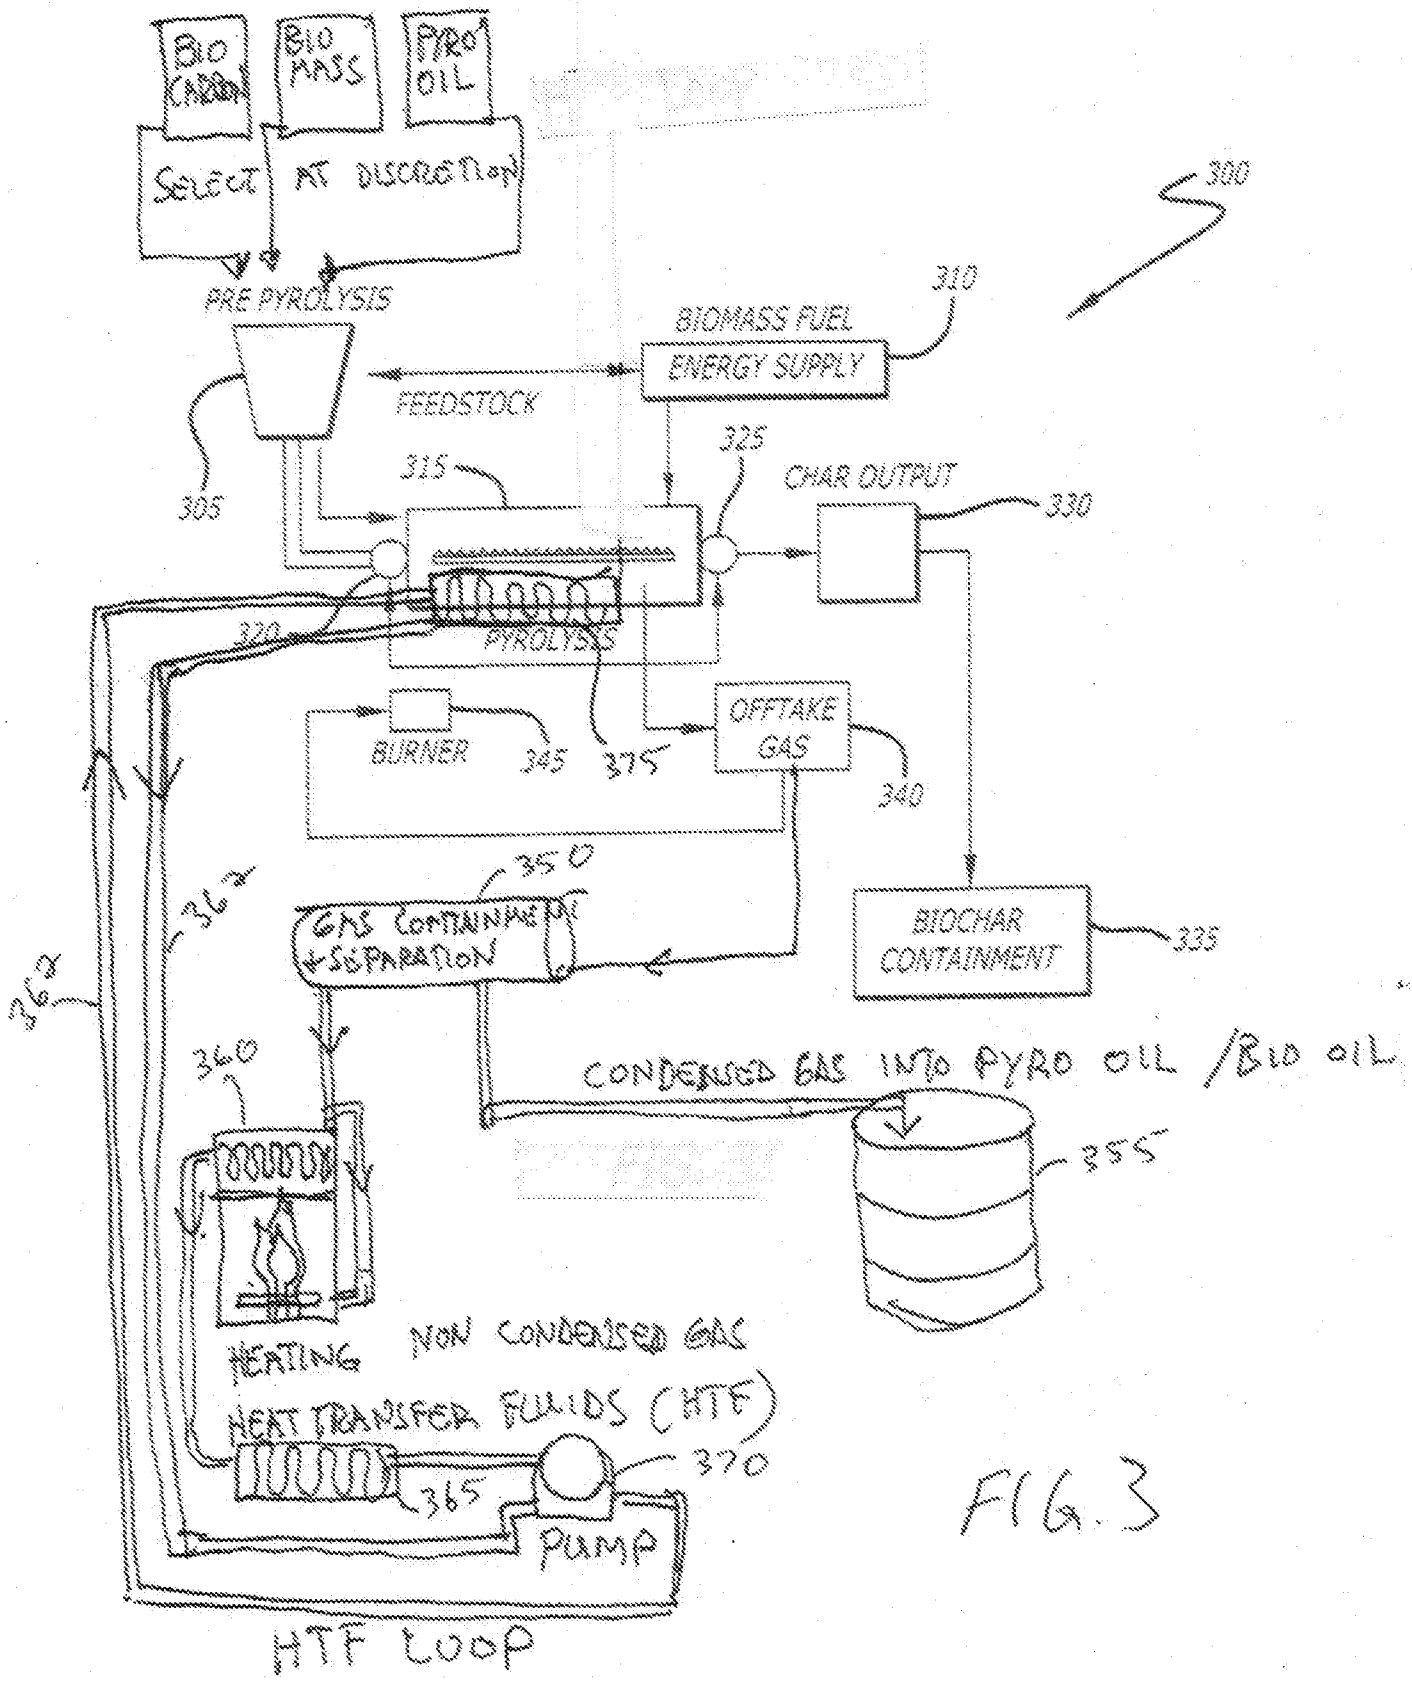 BIO
CARBON
BIO
MASS
PYRO
OIL
SELECT AT DISCRETION
300
PRE PYROLYSIS
310
BIOMASS FUEL
ENERGY SUPPLY
FEEDSTOCK
305
315
325
CHAR OUTPUT
330
320
PYROLYSIS
BURNER
345
375
OFFTAKE
GAS
340
350
GAS CONTAINMENT
+ SEPARATION
362
362
BIOCHAR
CONTAINMENT
335
360
CONDENSED GAS INTO PYRO OIL / BIO OIL
355
HEATING
NON CONDENSED GAS
HEAT TRANSFER FLUIDS (HTF)
365
370
PUMP
HTF LOOP
FIG. 3